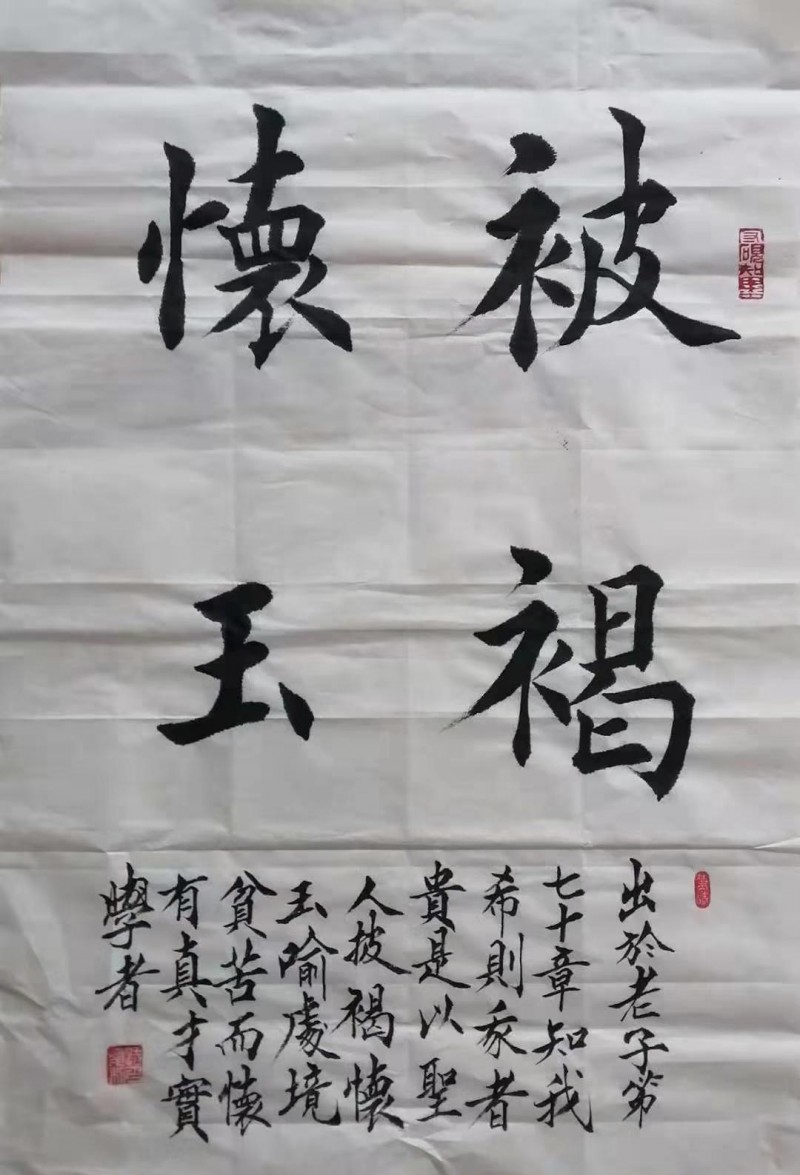 被褐
懷玉
出於老子第
七十章知我
希則我者
貴是以聖
人披褐懷
玉喻處境
貧苦而懷
有真才實
學者